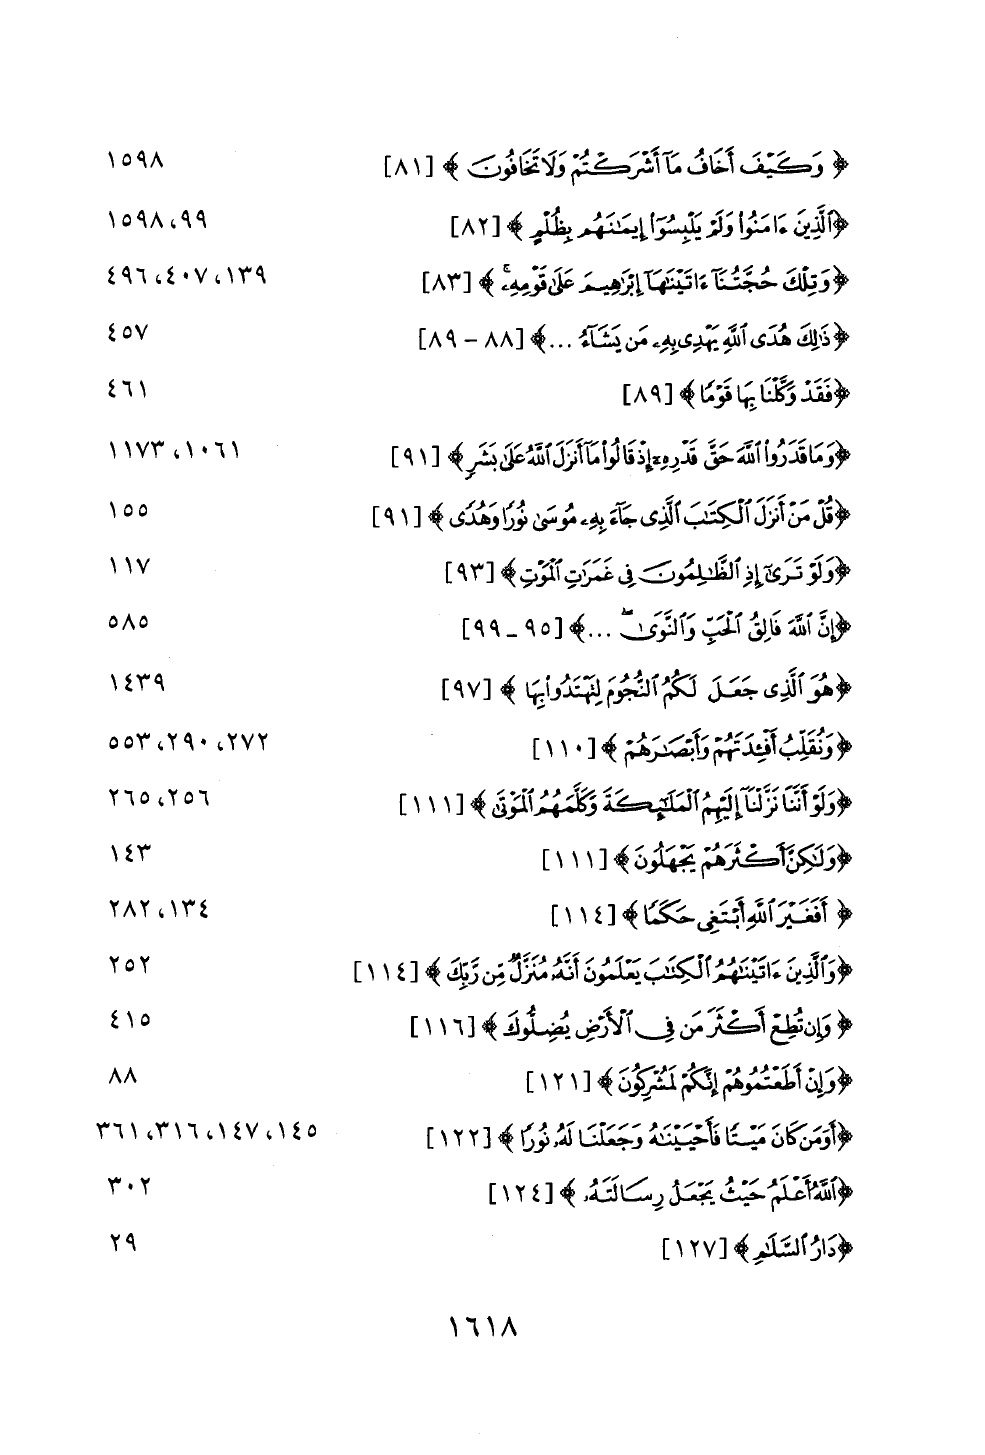 ﴿ وَكَيْفَ أَخَافُ مَآ أَشْرَكْتُمْ وَلَا تَخَافُونَ ﴾ [٨١] ١٥٩٨
﴿ٱلَّذِينَ ءَامَنُوا۟ وَلَمْ يَلْبِسُوٓا۟ إِيمَـٰنَهُم بِظُلْمٍ ﴾ [٨٢] ٩٩، ١٥٩٨
﴿وَتِلْكَ حُجَّتُنَآ ءَاتَيْنَـٰهَآ إِبْرَٰهِيمَ عَلَىٰ قَوْمِهِۦۚ ﴾ [٨٣] ١٣٩، ٤٠٧، ٤٩٦
﴿ذَٰلِكَ هُدَى ٱللَّهِ يَهْدِى بِهِۦ مَن يَشَآءُ ...﴾ [٨٨ – ٨٩] ٤٥٧
﴿فَقَدْ وَكَّلْنَا بِهَا قَوْمًا ﴾ [٨٩] ٤٦١
﴿وَمَا قَدَرُوا۟ ٱللَّهَ حَقَّ قَدْرِهِۦٓ إِذْ قَالُوا۟ مَآ أَنزَلَ ٱللَّهُ عَلَىٰ بَشَرٍ ﴾ [٩١] ١٠٦١، ١١٧٣
﴿قُلْ مَنْ أَنزَلَ ٱلْكِتَـٰبَ ٱلَّذِى جَآءَ بِهِۦ مُوسَىٰ نُورًا وَهُدًى ﴾ [٩١] ١٥٥
﴿وَلَوْ تَرَىٰٓ إِذِ ٱلظَّـٰلِمُونَ فِى غَمَرَٰتِ ٱلْمَوْتِ ﴾ [٩٣] ١١٧
﴿إِنَّ ٱللَّهَ فَالِقُ ٱلْحَبِّ وَٱلنَّوَىٰۖ ...﴾ [٩٥ ـ ٩٩] ٥٨٥
﴿هُوَ ٱلَّذِى جَعَلَ لَكُمُ ٱلنُّجُومَ لِتَهْتَدُوا۟ بِهَا ﴾ [٩٧] ١٤٣٩
﴿وَنُقَلِّبُ أَفْـِٔدَتَهُمْ وَأَبْصَـٰرَهُمْ ﴾ [١١٠] ٢٧٢، ٢٩٠، ٥٥٣
﴿وَلَوْ أَنَّنَا نَزَّلْنَآ إِلَيْهِمُ ٱلْمَلَـٰٓئِكَةَ وَكَلَّمَهُمُ ٱلْمَوْتَىٰ ﴾ [١١١] ٢٥٦، ٢٦٥
﴿وَلَـٰكِنَّ أَكْثَرَهُمْ يَجْهَلُونَ ﴾ [١١١] ١٤٣
﴿ أَفَغَيْرَ ٱللَّهِ أَبْتَغِى حَكَمًا ﴾ [١١٤] ١٣٤، ٢٨٢
﴿وَٱلَّذِينَ ءَاتَيْنَـٰهُمُ ٱلْكِتَـٰبَ يَعْلَمُونَ أَنَّهُۥ مُنَزَّلٌ مِّن رَّبِّكَ ﴾ [١١٤] ٢٥٢
﴿ وَإِن تُطِعْ أَكْثَرَ مَن فِى ٱلْأَرْضِ يُضِلُّوكَ ﴾ [١١٦] ٤١٥
﴿وَإِنْ أَطَعْتُمُوهُمْ إِنَّكُمْ لَمُشْرِكُونَ ﴾ [١٢١] ٨٨
﴿أَوَمَن كَانَ مَيْتًا فَأَحْيَيْنَـٰهُ وَجَعَلْنَا لَهُۥ نُورًا ﴾ [١٢٢] ١٤٥، ١٤٧، ٣١٦، ٣٦١
﴿ٱللَّهُ أَعْلَمُ حَيْثُ يَجْعَلُ رِسَالَتَهُۥ ﴾ [١٢٤] ٣٠٢
﴿دَارُ ٱلسَّلَـٰمِ ﴾ [١٢٧] ٢٩
١٦١٨